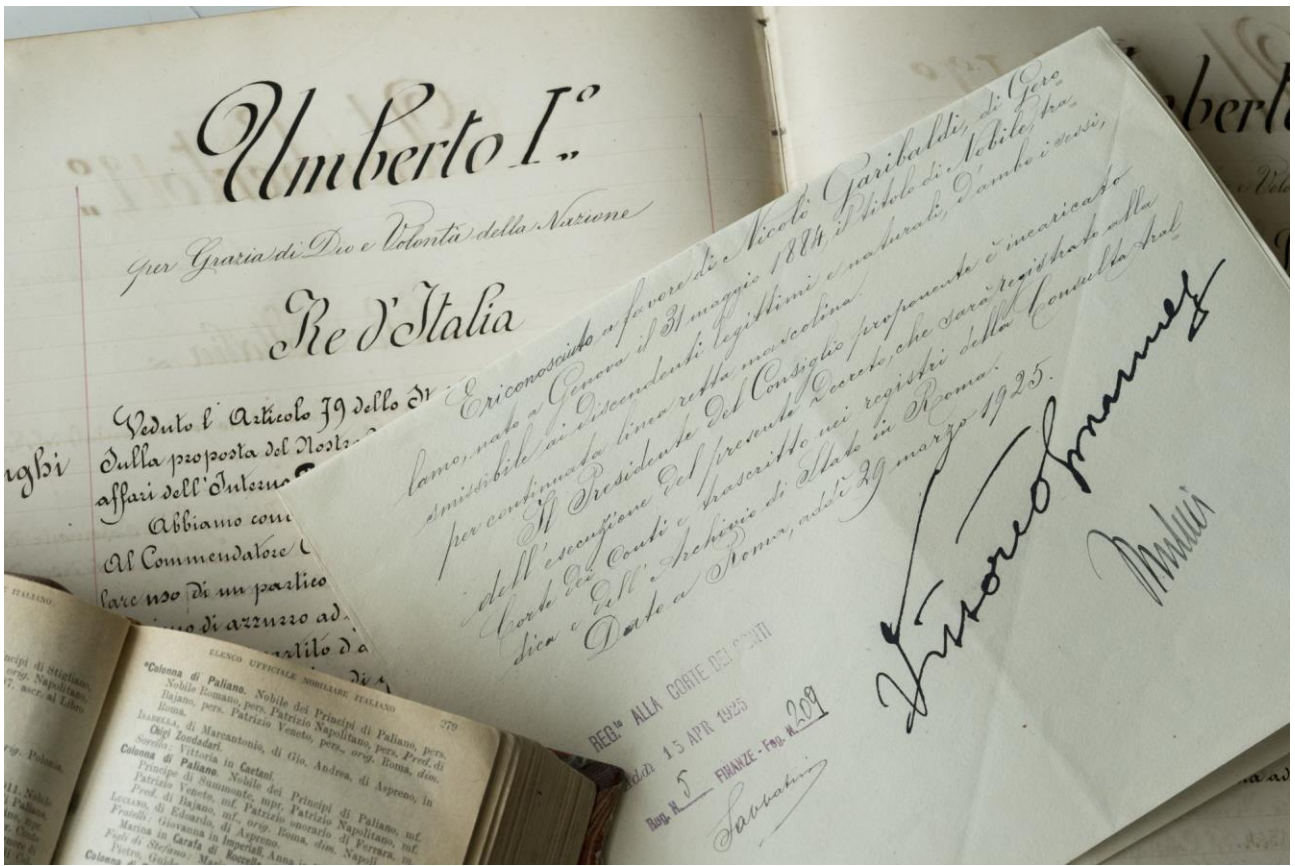 Umberto I.º
per Grazia di Dio e Volontà della Nazione
Re d'Italia
Veduto l'Articolo 79 dello
Sulla proposta del Nostro
affari dell'Interno
Abbiamo
Al Commendatore
lare uso di un
di azzurro
E riconosciuto a favore di Nicolò Garibaldi, di Gero
lamo, nato a Genova il 31 maggio 1884, il titolo di Nobile, tra-
smissibile ai discendenti legittimi e naturali, d'ambo i sessi,
per continuata linea retta mascolina.
Il Presidente del Consiglio proponente è incaricato
dell'esecuzione del presente Decreto, che sarà registrato alla
Corte dei Conti e trascritto nei registri della Consulta Aral-
dica e dell'Archivio di Stato in Roma.
Dato a Roma, addì 29 marzo 1925.
Vittorio Emanuele
REG.to ALLA CORTE DEI CONTI
addì 15 APR 1925
Reg. N. 5 FINANZE - Fog. N. 209
E ITALIANO
ncipi di Stigliano,
orig. Napolitano,
ascr. al Libro
orig. Polonia,
ELENCO UFFICIALE NOBILIARE ITALIANO 279
*Colonna di Paliano. Nobile dei Principi di Paliano, pers.
Nobile Romano, pers. Patrizio Napolitano, pers. Pred. di
Bajano, pers. Patrizio Veneto, pers., orig. Roma, dim.
Roma.
Isabella, di Marcantonio, di Gio. Andrea, di Aspreno, in
Chigi Zondadari.
Sorella: Vittoria in Caetani.
Colonna di Paliano. Nobile dei Principi di Paliano, mf.
Principe di Summonte, mpr. Patrizio Napolitano, mf.
Patrizio Veneto, mf. Patrizio onorario di Ferrara, m.
Pred. di Bajano, mf., orig. Roma, dim. Napoli.
Luciano, di Edoardo, di Aspreno.
Fratelli: Giovanna in Imperiali, Anna in
Marina in Carafa di Roccella
Figli di Stefano:
Pietro, Guido
Colonna di